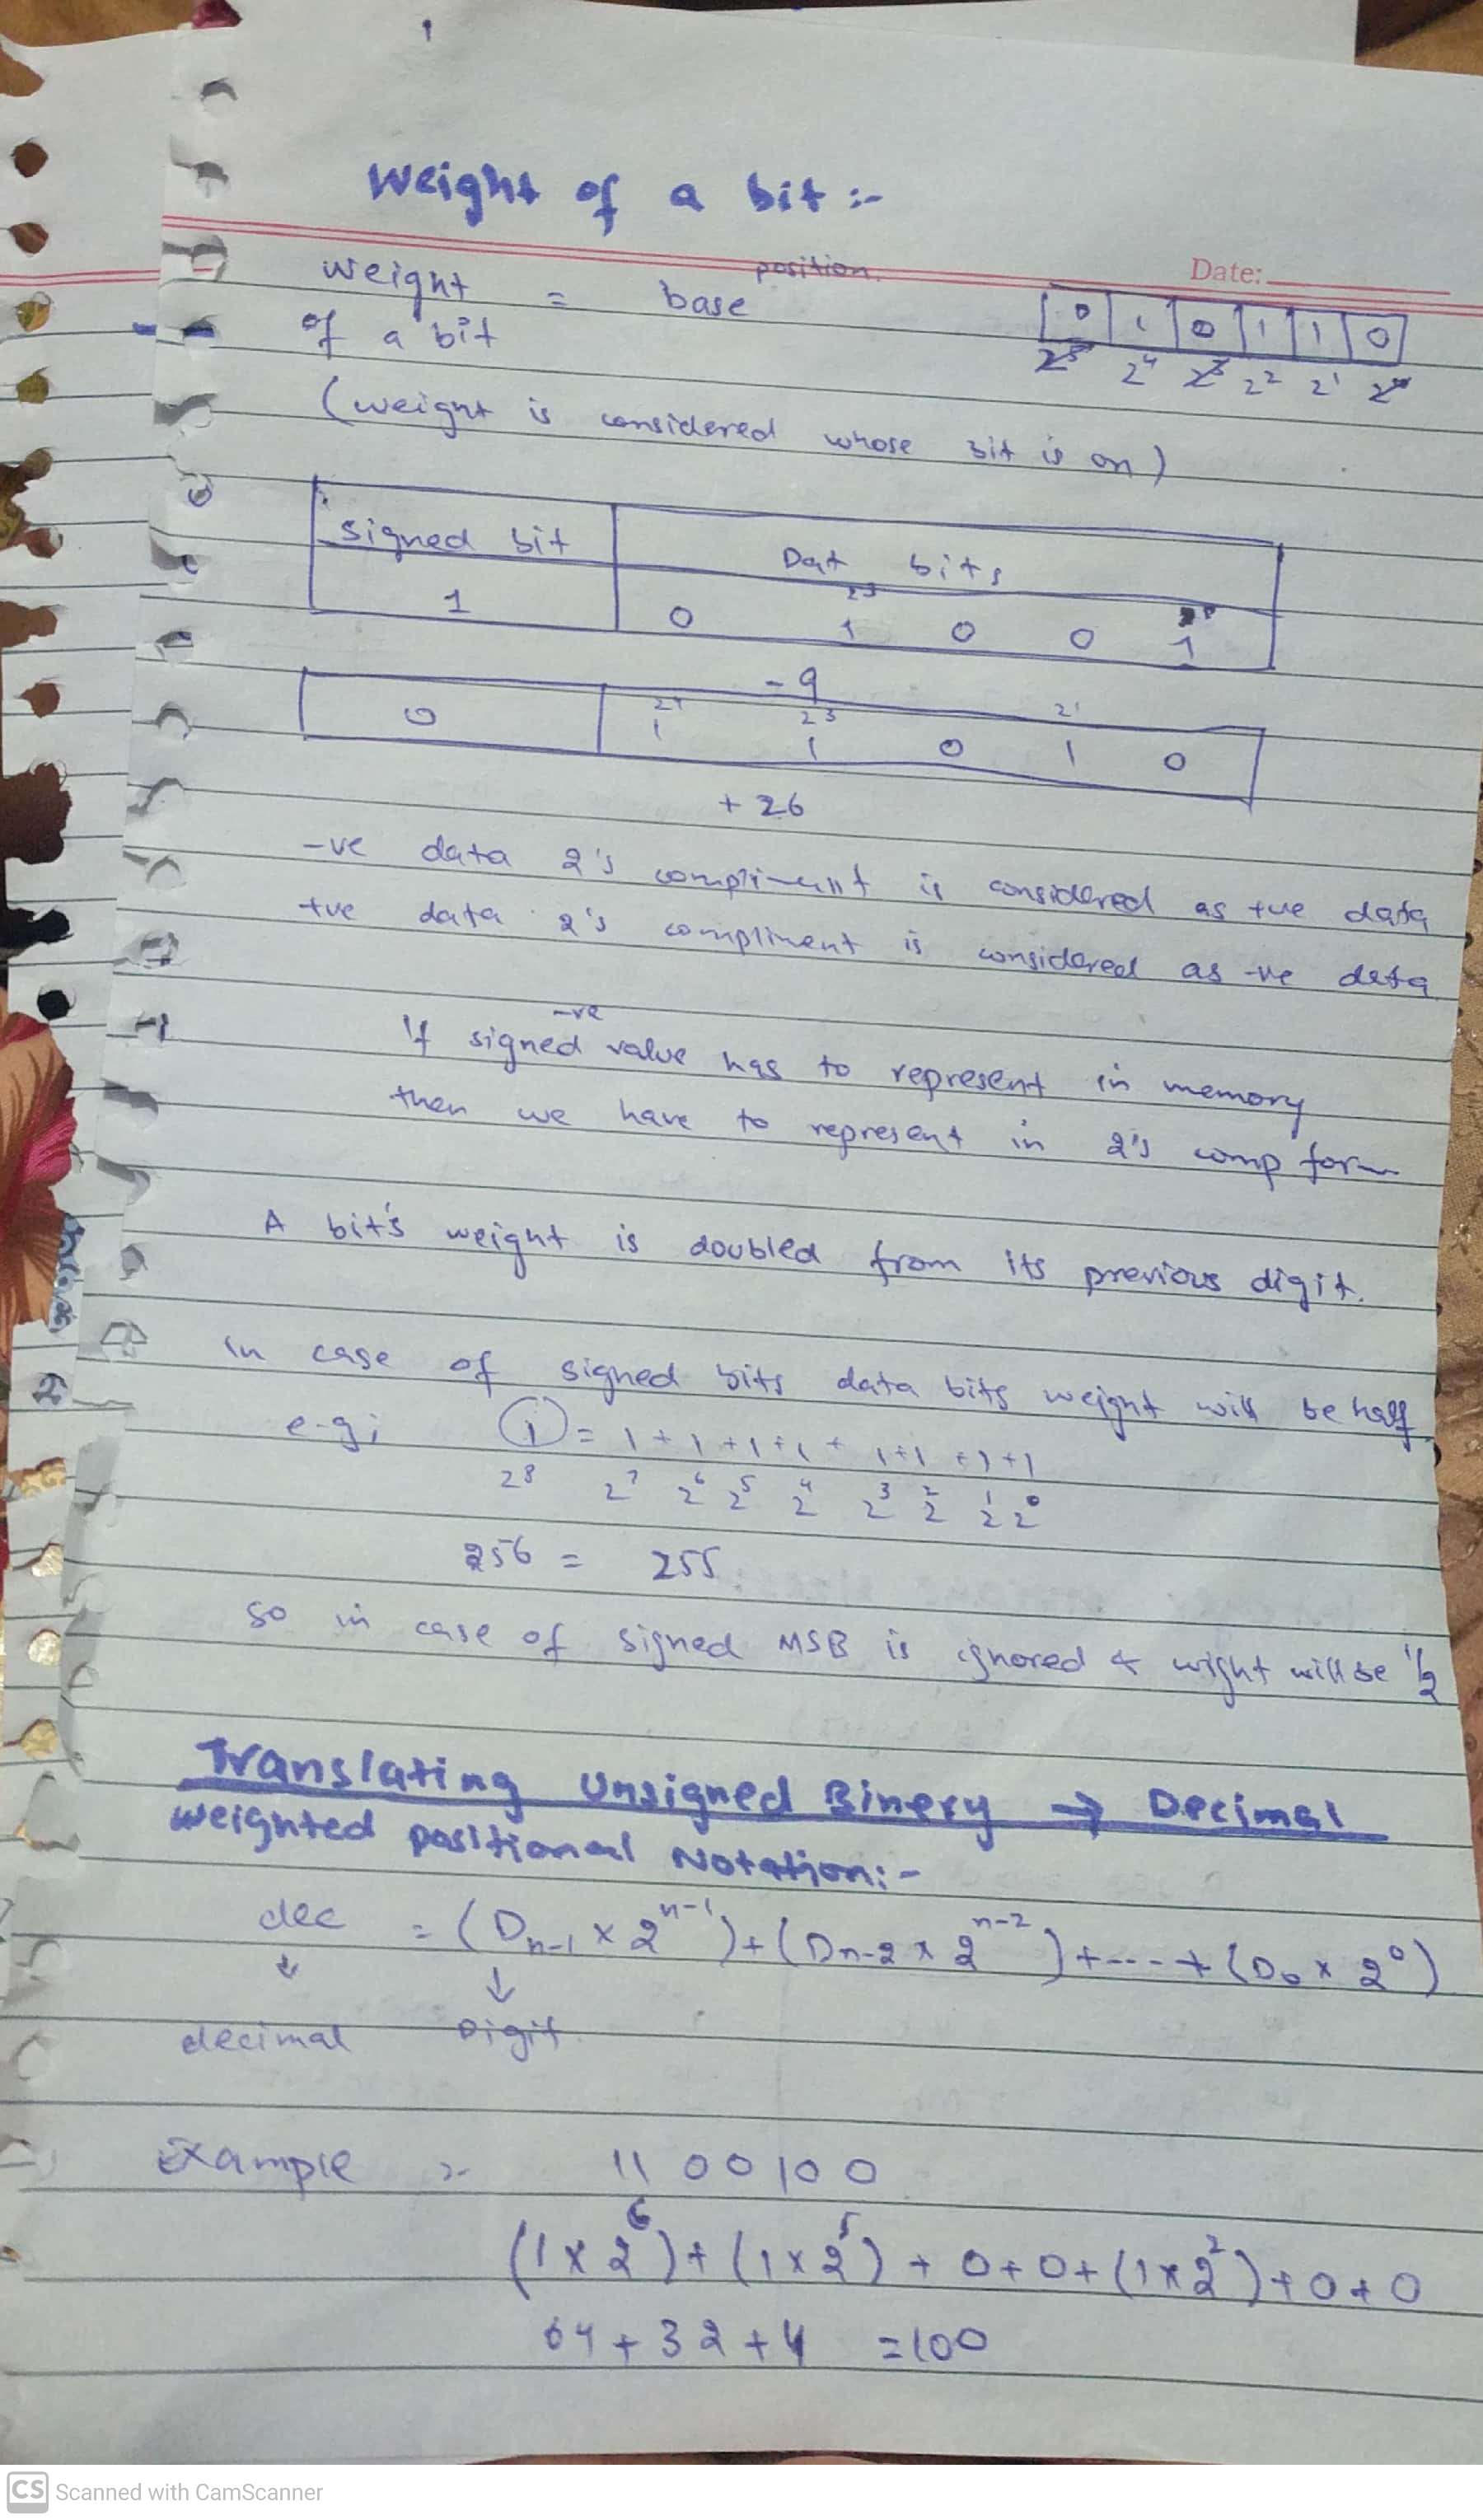 1
Weight of a bit :-
Date:
weight = base position
of a bit
0 1 0 1 1 0
2⁵ 2⁴ 2³ 2² 2¹ 2⁰
(weight is considered whose bit is on)
signed bit Dat bits
2³ 2⁰
1 0 1 0 0 1
- 9
2⁴ 2³ 2¹
0 1 1 0 1 0
+ 26
-ve data 2's compliment is considered as +ve data
+ve data 2's compliment is considered as -ve data
-ve
If signed value has to represent in memory
then we have to represent in 2's comp form
A bit's weight is doubled from its previous digit.
in case of signed bits data bits weight will be half
e.g; 1 = 1 + 1 + 1 + 1 + 1 + 1 + 1 + 1
2⁸ 2⁷ 2⁶ 2⁵ 2⁴ 2³ 2² 2¹ 2⁰
256 = 255
so in case of signed MSB is ignored & wight will be 1/2
Translating Unsigned Binery → Decimal
Weighted positional Notation:-
dec = (Dn-1 × 2ⁿ⁻¹) + (Dn-2 × 2ⁿ⁻²) + ---- + (D0 × 2⁰)
↓ ↓
decimal Digit
Example :- 1100100
(1 × 2⁶) + (1 × 2⁵) + 0 + 0 + (1 × 2²) + 0 + 0
64 + 32 + 4 = 100
CS Scanned with CamScanner